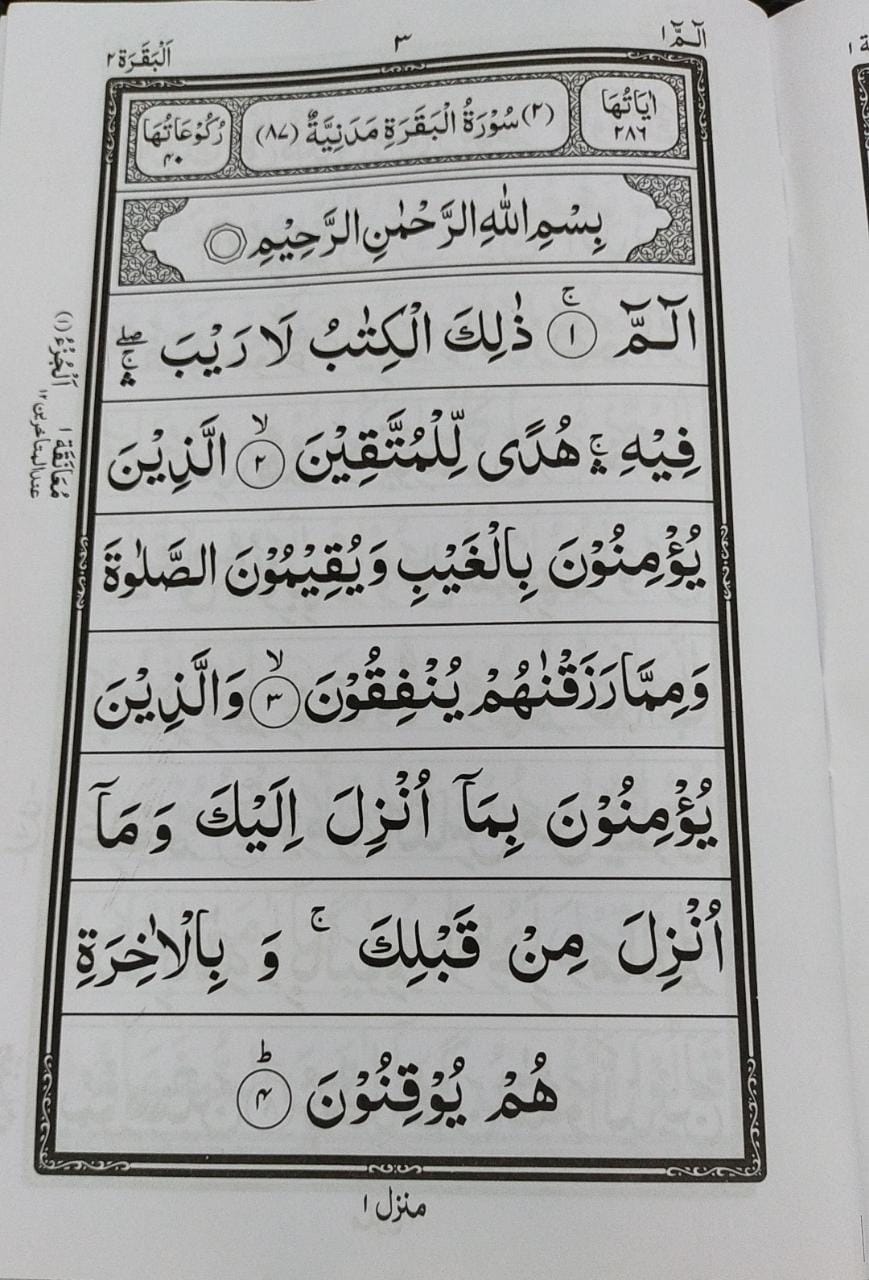 الٓمّٓ ١
٣
اَلْبَقَرَة ٢
اٰيَاتُهَا ٢٨٦
(٢) سُوْرَةُ الْبَقَرَةِ مَدَنِيَّةٌ (٨٧)
رُكُوْعَاتُهَا ٤٠
بِسْمِ اللّٰهِ الرَّحْمٰنِ الرَّحِيْمِ
الٓمّٓ ۚ ١ ذٰلِكَ الْكِتٰبُ لَا رَيْبَ ۖ ۚ ۛ
فِيْهِ ۚ ۛ هُدًى لِّلْمُتَّقِيْنَ ۙ ٢ الَّذِيْنَ
يُؤْمِنُوْنَ بِالْغَيْبِ وَيُقِيْمُوْنَ الصَّلٰوةَ
وَمِمَّا رَزَقْنٰهُمْ يُنْفِقُوْنَ ۙ ٣ وَالَّذِيْنَ
يُؤْمِنُوْنَ بِمَآ اُنْزِلَ اِلَيْكَ وَمَآ
اُنْزِلَ مِنْ قَبْلِكَ ۚ وَ بِالْاٰخِرَةِ
هُمْ يُوْقِنُوْنَ ؕ ٤
اَلْجُزْءُ (١)
مُعَانَقَة ١
عند المتاخرين ١٢
منزل ١